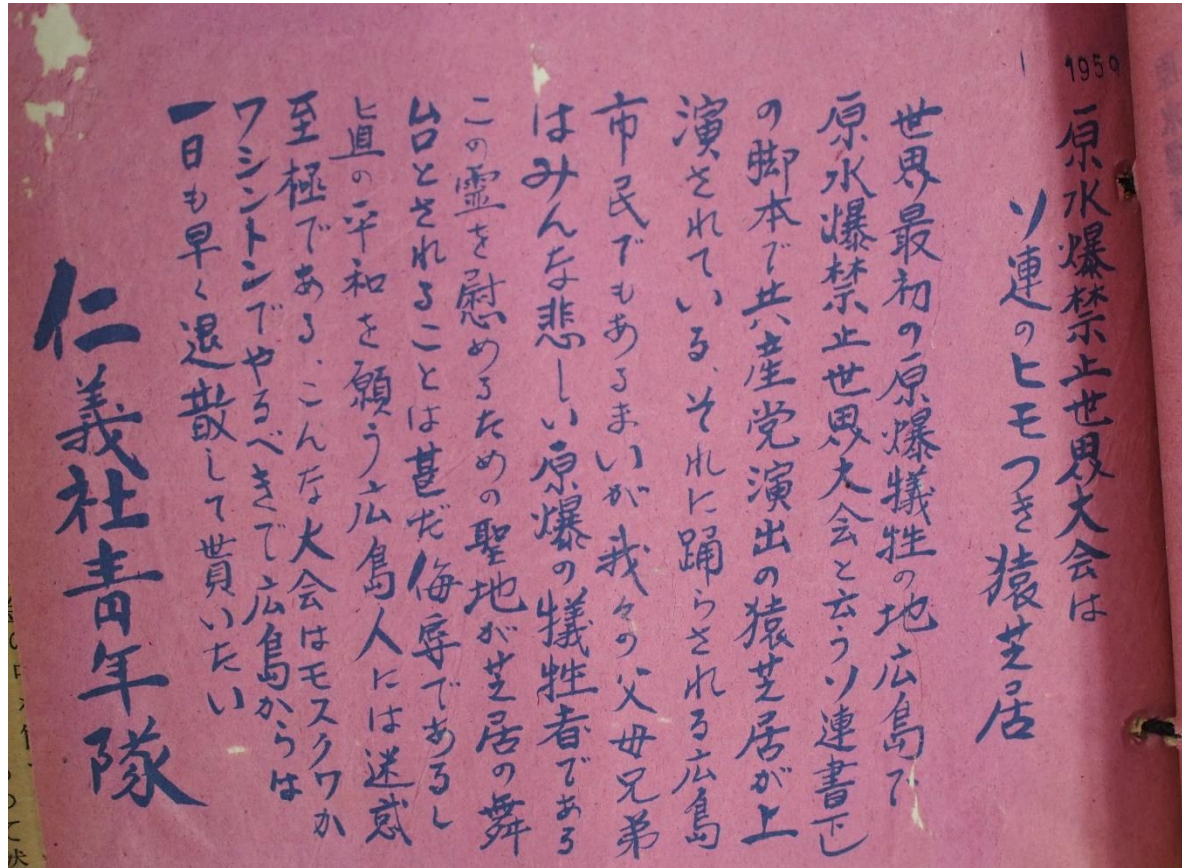 1959
原水爆禁止世界大会は
ソ連のヒモつき猿芝居
世界最初の原爆犠牲の地広島で
原水爆禁止世界大会と云うソ連書下し
の脚本で共産党演出の猿芝居が上
演されている、それに踊らされる広島
市民でもあるまいが我々の父母兄弟
はみんな悲しい原爆の犠牲者である
この霊を慰めるための聖地が芝居の舞
台とされることは甚だ侮辱であるし
真の平和を願う広島人には迷惑
至極である、こんな大会はモスクワか
ワシントンでやるべきで広島からは
一日も早く退散して貰いたい
仁義社青年隊